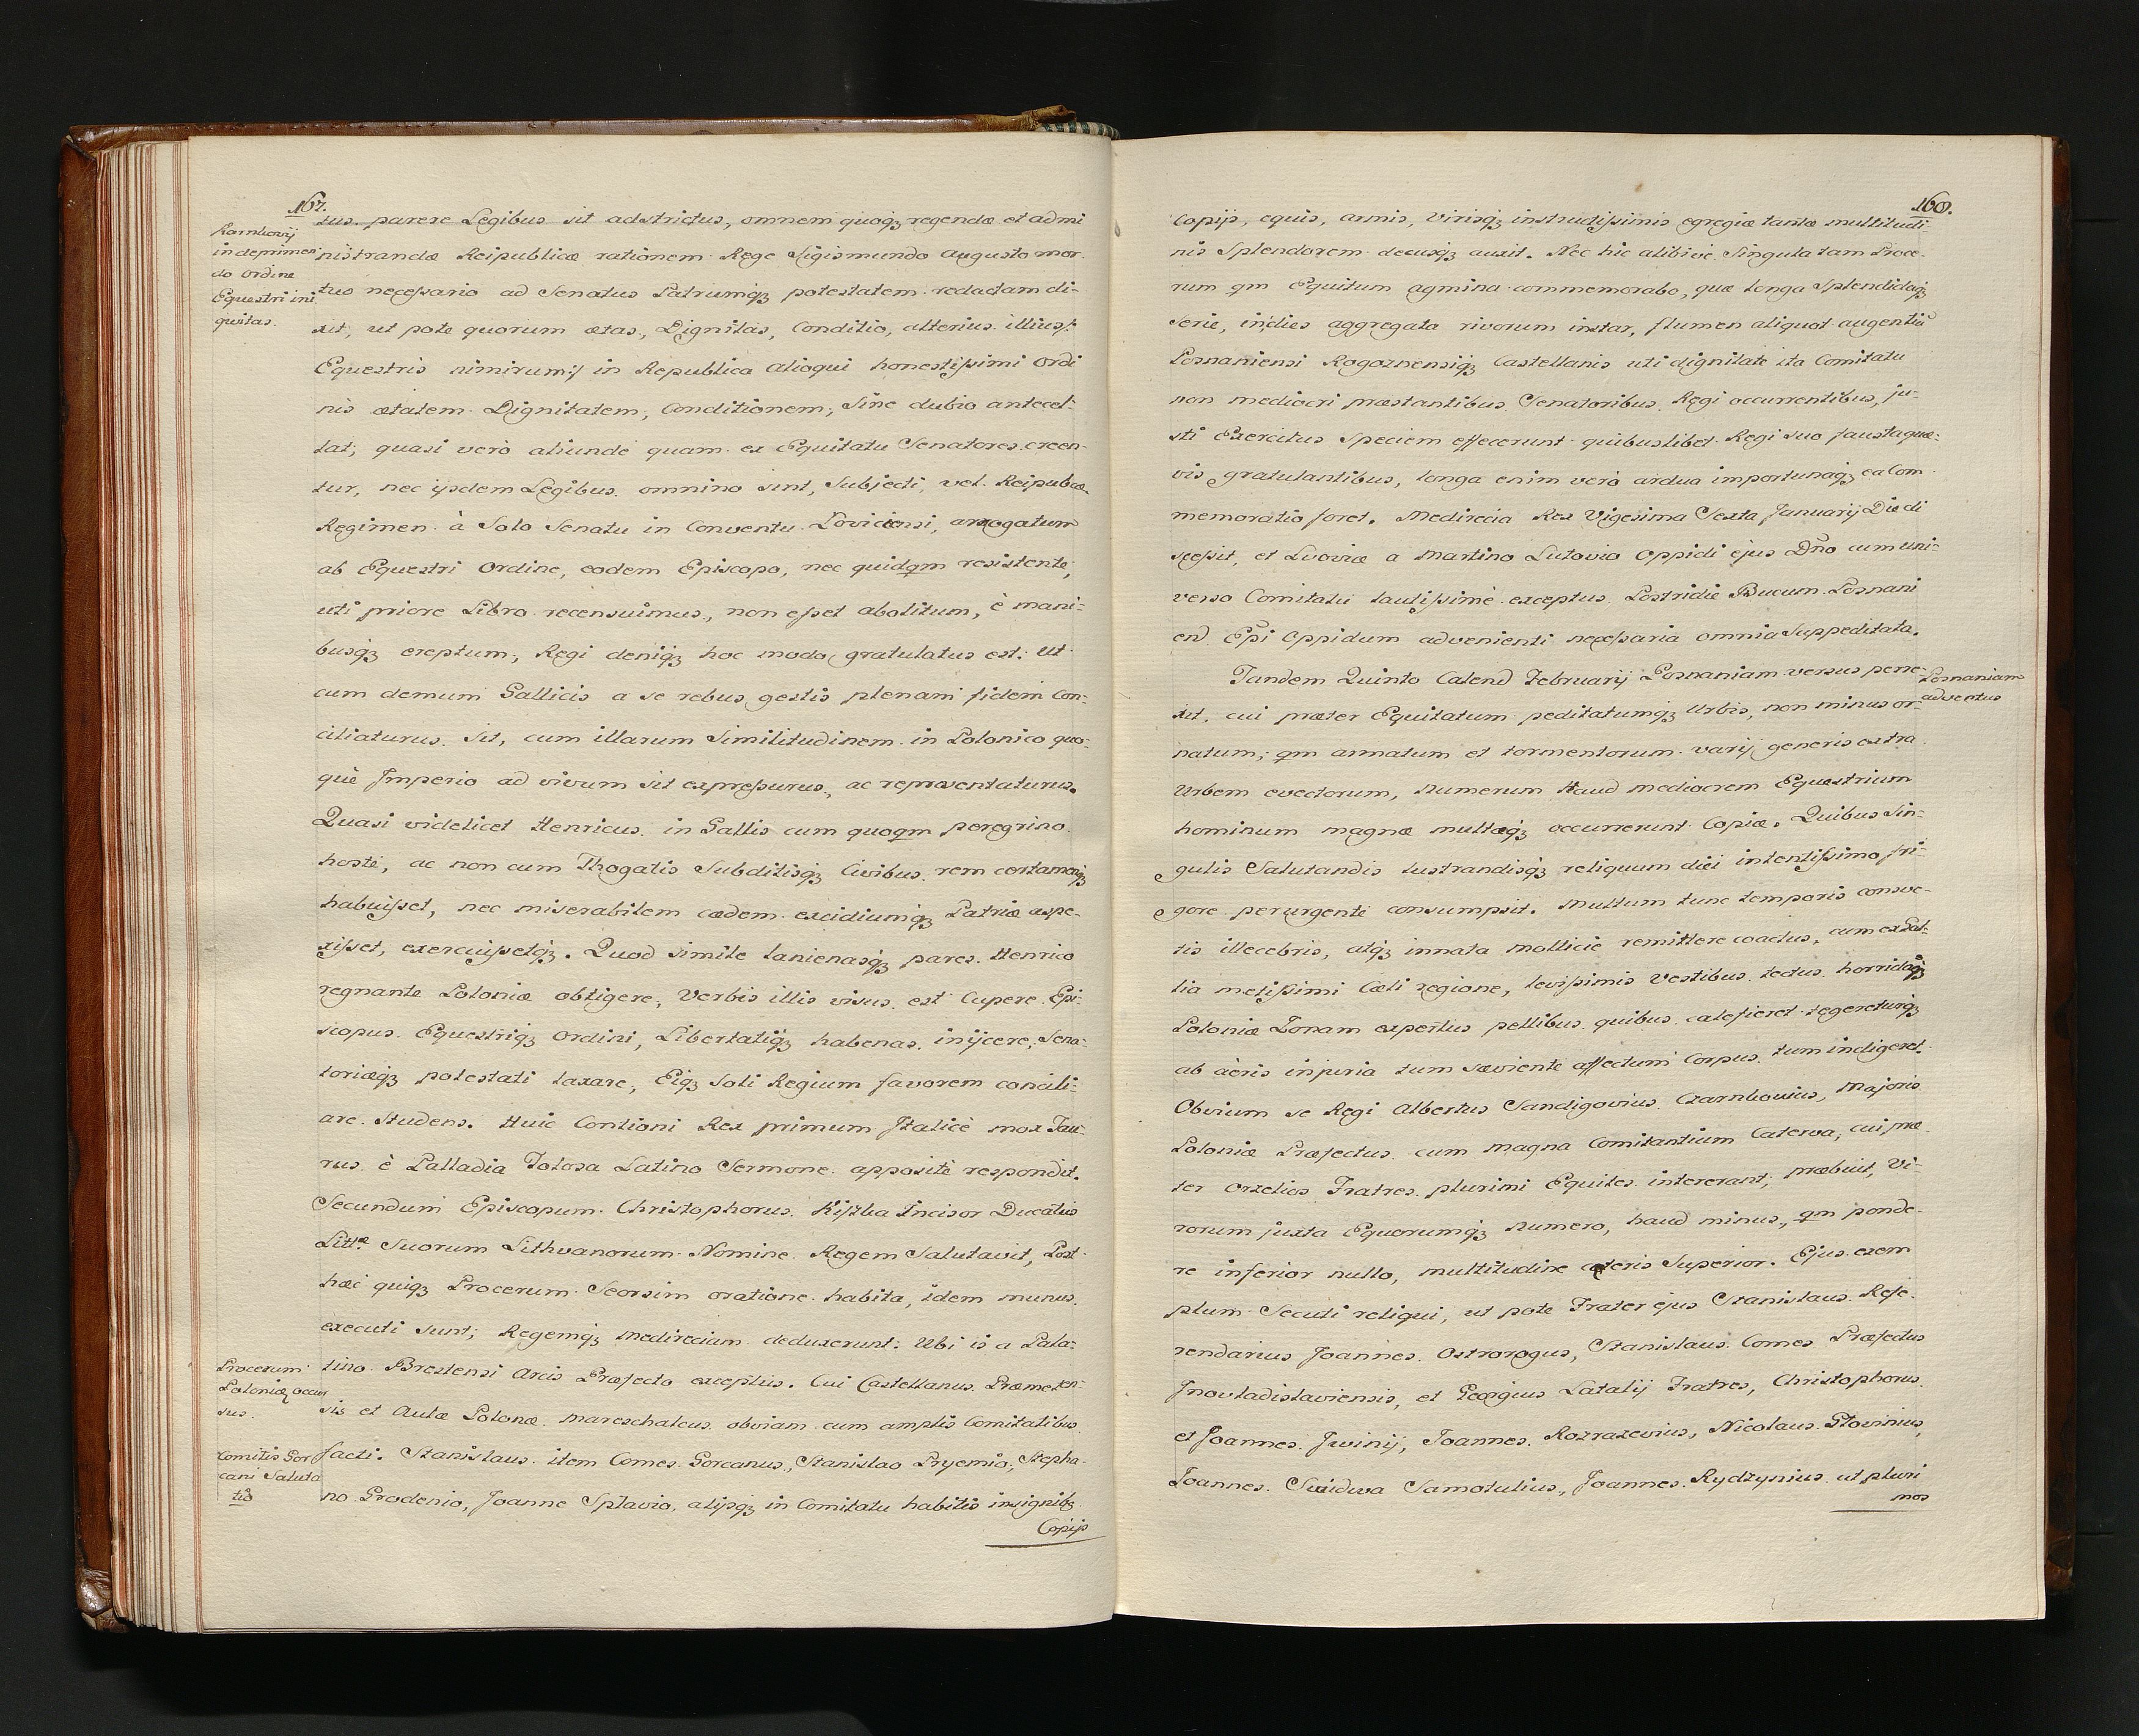 167.
Karnkovij
in deprimen
do Ordine
Equestri ini
quitas.
tus. parere Legibus sit adstrictus, omnem quoqȝ regendæ et admi
nistrandæ Reipublicæ rationem Rege Sigismundo Augusto mor
tuo neceſsario ad Senatus Patrumqȝ potestatem redactam di-
xit, ut pote quorum ætas, Dignitas, Conditio, alterius illius /:
Equestris nimirum:/ in Republica alioqui honestiſsimi Ordi
nis ætatem Dignitatem, Conditionem, Sine dubio antecel-
lat; quasi verò aliundè quam ex Equitatu Senatores creen-
tur, nec ijsdem Legibus omnino sint, Subjecti, vel Reipubcæ
Regimen à Solo Senatu in Conventu Loviciensi, arrogatum
ab Equestri Ordine, eodem Episcopo, nec quidqm resistente,
uti priore Libro recensuimus, non eſset abolitum, è mani-
busqȝ ereptum, Regi deniqȝ hoc modo gratulatus est: Ut
cum demum Gallicis a se rebus gestis plenam fidem Con-
ciliaturus Sit, cum illarum Similitudinem in Polonico quo-
què Imperio ad vivum sit expreſsurus, ac repræsentaturus.
Quasi videlicet Henricus in Gallis cum quoqm peregrino
hoste, ac non cum Thogatis Subditisqȝ Civibus rem certamenqȝ
habuiſset, nec miserabilem cædem excidiumqȝ Patriæ aspe-
xiſset, exercuiſsetqȝ. Quod simile lanienasqȝ pares Henrico
regnante Poloniæ obtigere, Verbis illis visus est Cupere Epi-
scopus Equestriqȝ Ordini, Libertatiqȝ habenas inijcere, Sena-
toriæqȝ potestati laxare, Eiqȝ Soli Regium favorem concili-
are Studens. Huic Contioni Rex primum Italicè mox Fau-
rus è Palladia Tolosa Latino Sermone appositè respondit.
Secundum Episcopum Christophorus Kiſzka Incisor Ducatus
Littæ Suorum Lithvanorum Nomine Regem Salutavit, Post
hæc quiqȝ Procerum Seorsim oratione habita, idem munus
executi sunt; Regemqȝ Medireciam deduxerunt: Ubi is a Pala-
Procerum
Poloniæ occur
sus.
tino Brestensi Arcis Præfecto exceptus. Cui Castellanus Præmeten-
sis et Aulæ Polonæ Mareschalcus obviam cum amplis Comitatibus
Comitis Gor
cani Saluta
tio
facti. Stanislaus item Comes Gorcanus, Stanislao Pryemio, Stepha-
no Grodenio, Joanne Splavio, alijsqȝ in Comitatu habitis insignibȝ
Copijs
160.
Copijs, equis, armis, Virisqȝ instructiſsimis egregiæ tantæ multitudi-
nis Splendorem decusqȝ auxit. Nec hic alibivè Singula tam Proce-
rum qm Equitum agmina commemorabo, quæ longa Splendidaqȝ
Serie, indies aggregata rivorum instar, flumen aliquot augentiū
Posnaniensi Rogoznensiqȝ Castellanis uti dignitate ita Comitatu
non mediocri præstantibus Senatoribus Regi occurrentibus, ju-
sti Exercitus Speciem effecerunt quibuslibet Regi suo faustaquæ-
vis gratulantibus, longa enim verò ardua importunaqȝ ea Com-
memoratio foret. Medirecia Rex Vigesima Sexta Januarij Die di
sceſsit, et Lvoviæ a Martino Lutovio Oppidi ejus Dño cum Uni-
verso Comitatu lautiſsimè exceptus Postridie Bucum Posnani
en̄ Ep̄i Oppidum advenienti neceſsaria omnia Suppeditata.
Tandem Quinto Calend Februarij Posnaniam versus perre-
Posnaniam
adventus
xit, cui præter Equitatum peditatumqȝ Urbis, non minus or-
natum, qm armatum et tormentorum varij generis extra
Urbem evectorum, numerum Haud mediocrem Equestrium
hominum magnæ multæqȝ occurrerunt Copiæ. Quibus Sin-
gulis Salutandis lustrandisqȝ reliquum diei intentiſsimo fri-
gore perurgente consumpsit. Multum tunc temporis consve-
tis illecebris, atqȝ innata mollicie remittere coactus, cum ex Gal-
lia mitiſsimi Cæli regione, leviſsimis Vestibus tectus horridaqȝ
Poloniæ Zonam expertus pellibus quibus calefieret tegereturqȝ
ab aëris injuria tum sæviente affectum Corpus tum indigeret.
Obvium se Regi Albertus Sandigovius Czarnkovius, Majoris
Poloniæ Præfectus cum magna Comitantium Caterva, cui præ-
ter Orzelios Fratres plurimi Equites intererant, præbuit, Vi-
rorum juxta Equorumqȝ numero, haud minus, qm ponde-
re inferior nullo, multitudine cæteris Superior. Ejus exem
plum Secuti reliqui, ut pote Frater ejus Stanislaus Refe-
rendarius Joannes Ostrorogus, Stanislaus Comes Præfectus
Inovladislaviensis, et Georgius Latalij Fratres, Christophorus
et Joannes Iwinij, Joannes Rozrazevius, Nicolaus Glovinius,
Joannes Swidwa Samotulius, Joannes Rydzynius ut pluri
mos